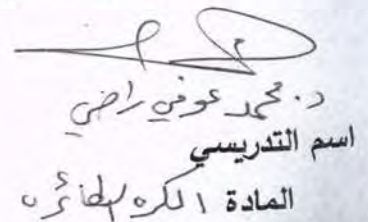 د. محمد عوفي راضي
اسم التدريسي
المادة الكره الطائره